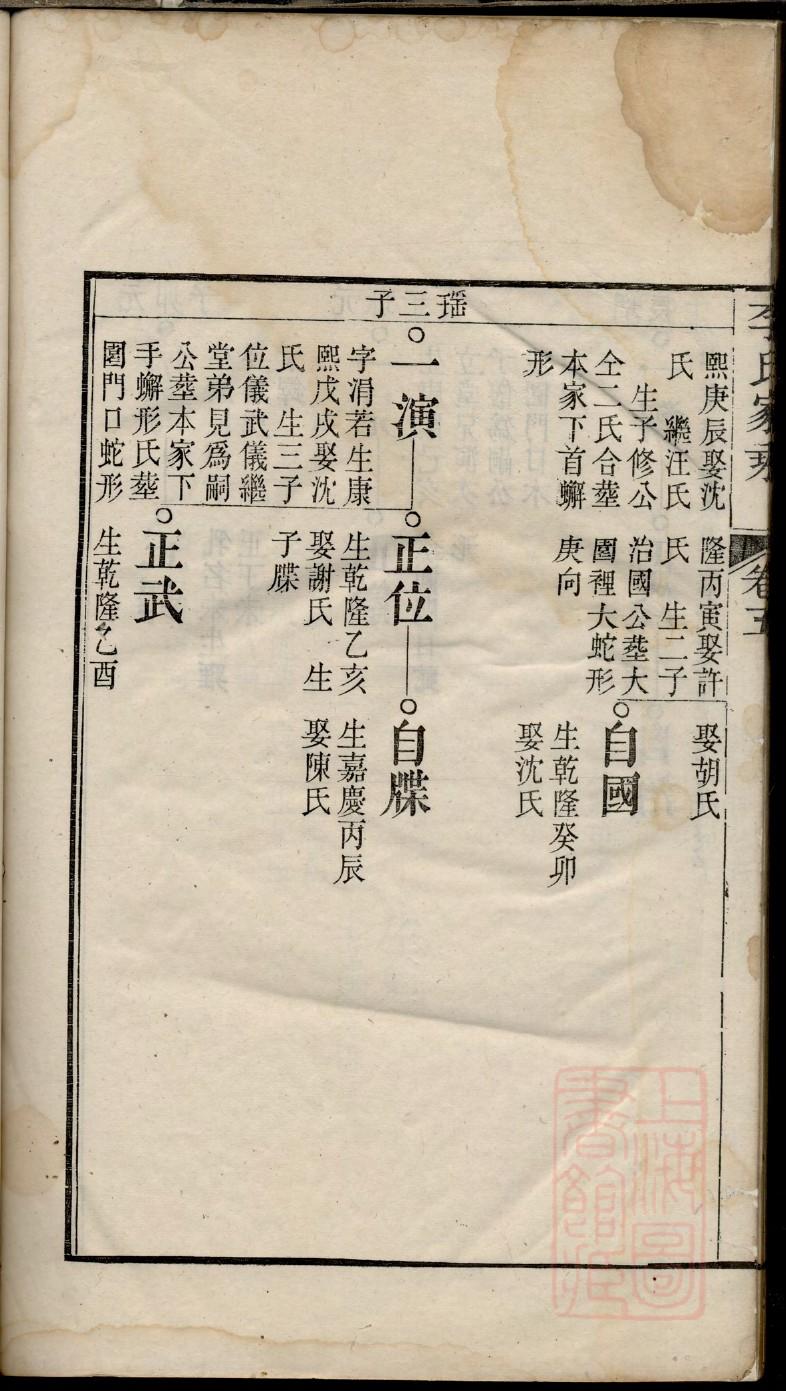 李氏家乘
卷五
瑶三子
熙庚辰娶沈
氏　繼汪氏
生子修公
仝二氏合塟
本家下首螃
形
隆丙寅娶許
氏　生二子
治國公塟大
園裡大蛇形
庚向
娶胡氏
自國
生乾隆癸卯
娶沈氏
一演
字涓若生康
熙戊戌娶沈
氏　生三子
位儀武儀繼
堂弟見為嗣
公塟本家下
手螃形氏塟
園門口蛇形
正位
生乾隆乙亥
娶謝氏　生
子牒
自牒
生嘉慶丙辰
娶陳氏
正武
生乾隆乙酉
上海圖書館藏